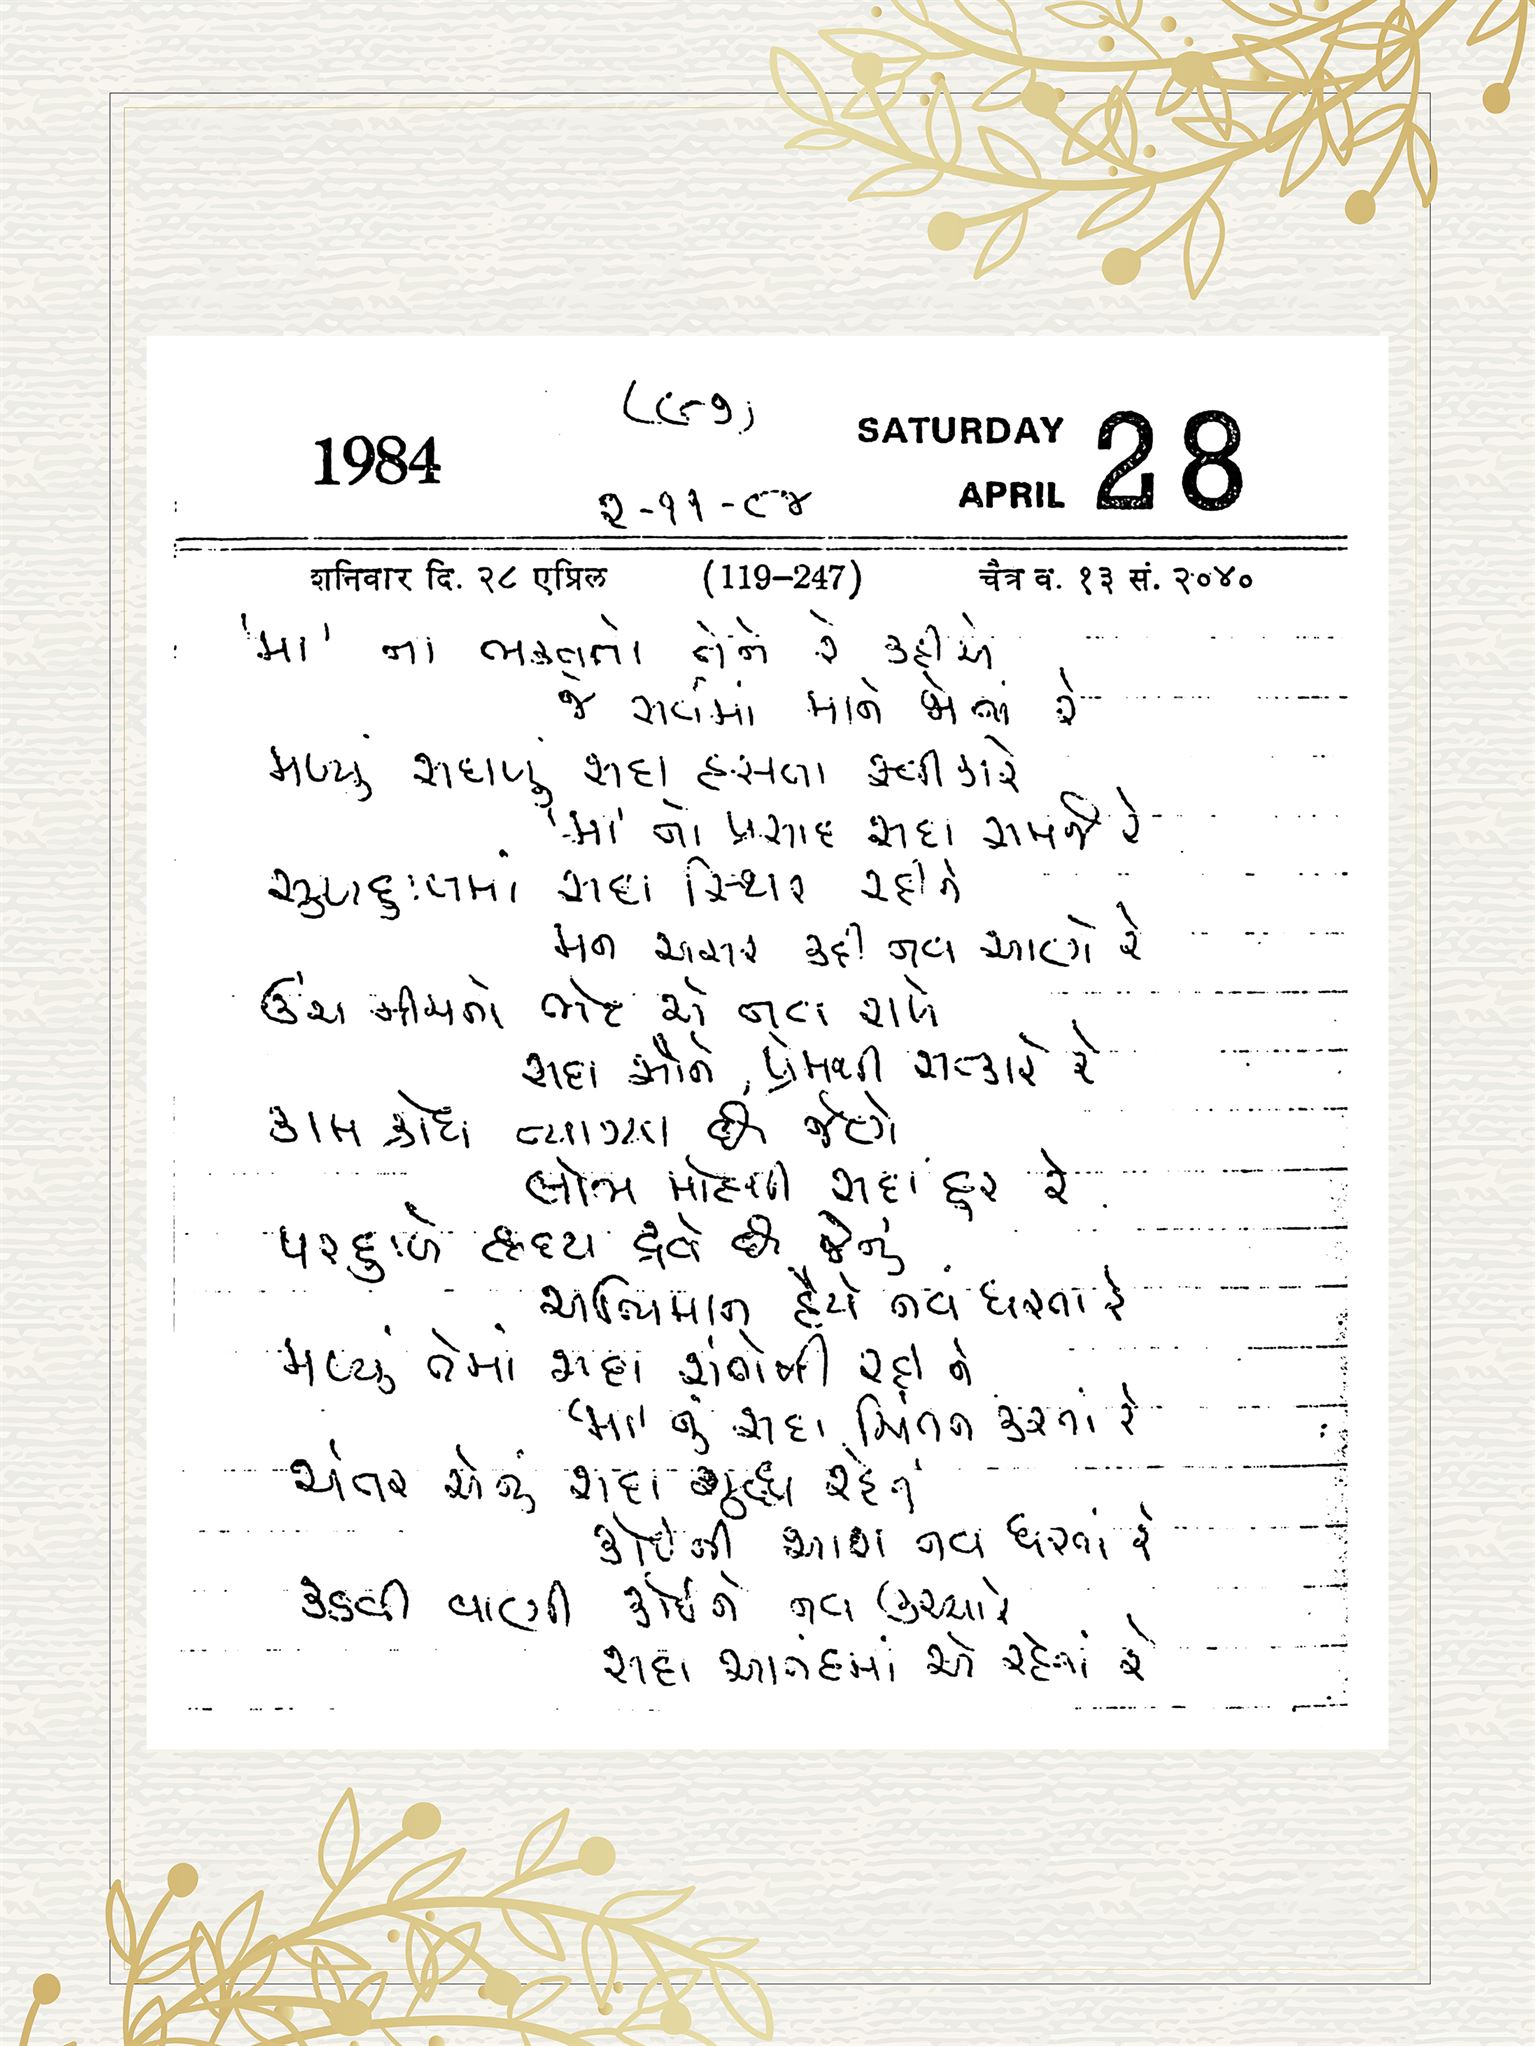 1984
SATURDAY
APRIL 28
૨-૧૧-૮૪
शनिवार दि. २८ एप्रिल (119–247) चैत्र व. १३ सं. २०४०
'મા' ના ભક્તતો તેને રે કહીએ
જે સર્વમાં માને જોતાં રે
મળ્યું સઘળું સદા હસતા સ્વીકારે
'મા' નો પ્રસાદ સદા સમજી રે
સુખદુઃખમાં સદા સ્થિર રહીને
મન અસર કદી નવ આણે રે
ઉંચ નીચનો ભેદ એ નવ રાખે
સદા સૌને પ્રેમથી સત્કારે રે
કામ ક્રોધ ત્યાગ્યા છે જેણે
લોભ મોહથી સદા દુર રે
પરદુઃખે હૃદય દ્રવે છે જેનું
અભિમાન હૈયે નવ ધરતાં રે
મળ્યું તેમાં સદા સંતોષી રહીને
'મા' નું સદા ચિંતન કરતાં રે
અંતર એનું સદા શુદ્ધ રહેતું
કોઈની આશ નવ ધરતાં રે
કડવી વાણી કોઈને નવ ઉચ્ચારે
સદા આનંદમાં એ રહેતાં રે